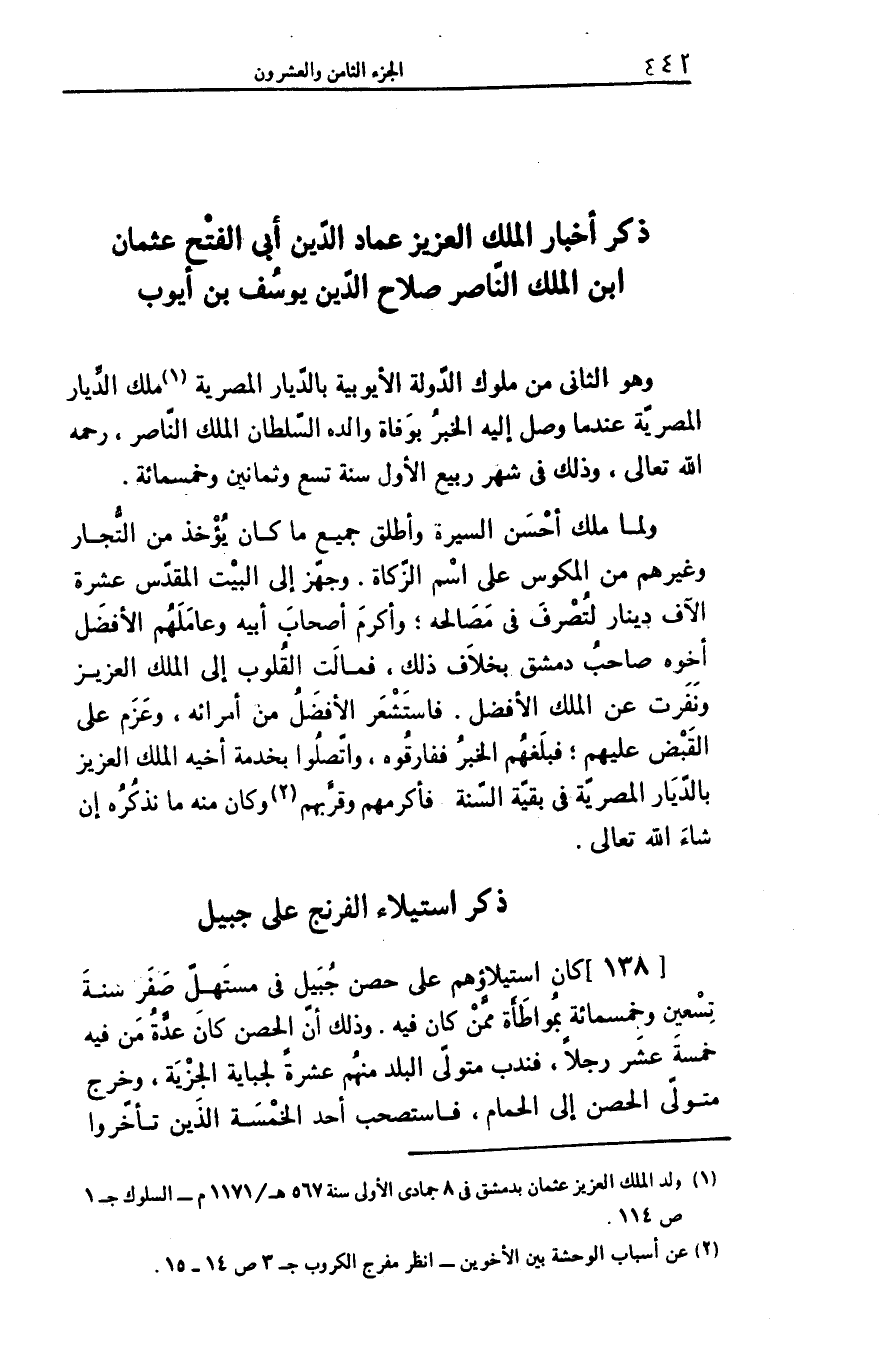 ٤٤٢
الجزء الثامن والعشرون
ذكر أخبار الملك العزيز عماد الدّين أبى الفتْح عثمان
ابن الملك النّاصر صلاح الدّين يوسُف بن أيوب
وهو الثانى من ملوك الدّولة الأيوبية بالدّيار المصرية (١)ملك الدِّيار
المصريّة عندما وصل إليه الخبرُ بوَفاة والده السّلطان الملك النّاصر ، رحمه
الله تعالى ، وذلك فى شهر ربيع الأول سنة تسع وثمانين وخمسمائة .
ولمـا ملك أحْسَن السيرة وأطلق جميـع ما كـان يُؤْخذ من التُّجـار
وغيرهم من المكوس على اسْم الزّكاة . وجهّز إلى البيْت المقدّس عشرة
الآف دِينار لتُصْرفَ فى مَصَالحه ؛ وأكرمَ أصحابَ أبيه وعامَلَهُم الأفضَل
أخوه صاحبُ دمشق بخلَاف ذلك ، فمـالَت القُلوب إلى الملك العزيـز
ونَفَرت عن الملك الأفضل . فاستَشْعَر الأفضَلُ من أمرائه ، وعَزَم على
القَبْض عليهم ؛ فبلَغهُم الخبرُ ففارقُوه ، واتّصلُوا بخدمة أخيه الملك العزيز
بالدّيَار المصريّة فى بقيّة السّنة فأكرمهم وقرَّبهم(٢)وكان منه ما نذكُرُه إن
شاءَ الله تعالى .
ذكر استيلاء الفرنج على جبيل
[ ١٣٨ ]كان استيلاؤهم على حصن جُبَيل فى مستَهـلّ صَفَر سنـةَ
تِسْعين وخمسمائة بمُواطَأَة ممَّنْ كان فيه . وذلك أنّ الحصن كانَ عدَّةُ مَن فيه
خمسةَ عشَر رجلاً ، فندب متولّى البلد منهُم عشرةً لجباية الجزْيَة ، وخرج
متـولّى الحصن إلى الحمام ، فـاستصحب أحد الخمْسَـة الذَين تـأخّروا
(١) ولد الملك العزيز عثمان بدمشق فى ٨ جمادى الأولى سنة ٥٦٧ هـ/١١٧١ م ــ السلوك جـ ١
ص ١١٤ .
(٢) عن أسباب الوحشة بين الأخوين ــ انظر مفرج الكروب جـ ٣ ص ١٤ ــ ١٥ .